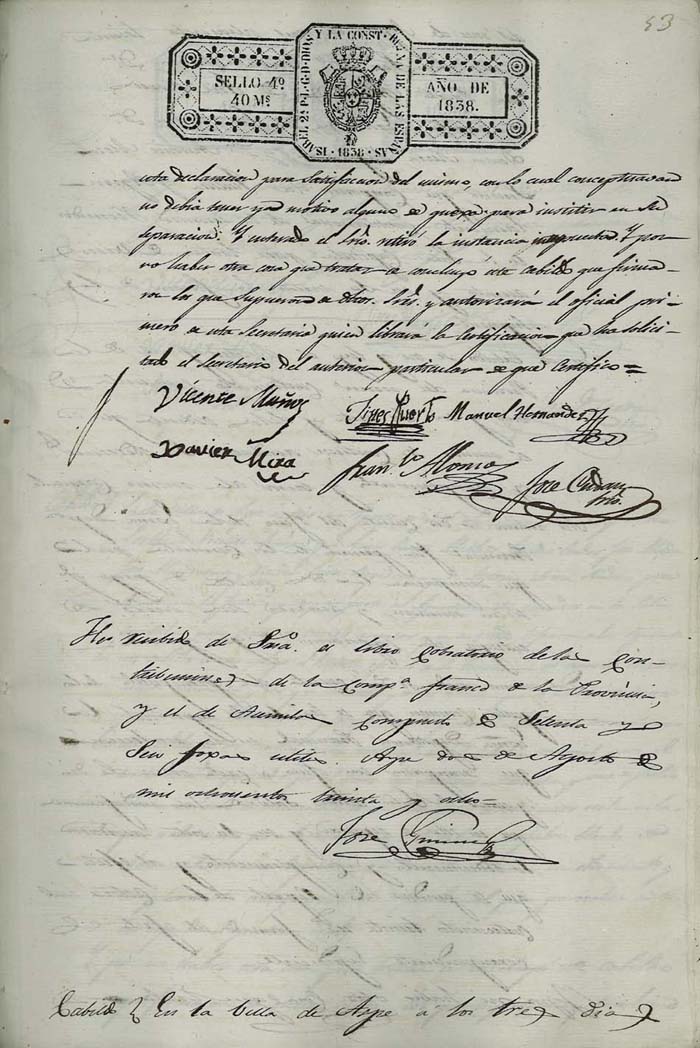 53
ISABEL 2ª P.L.G.D.DIOS Y LA CONST. REYNA DE LAS ESPAÑAS · 1838 ·
SELLO 4º
40 Mˢ
AÑO DE
1838.
esta declaracion para satisfaccion del mismo, con lo cual conceptuavan
no debia tener ya motivo alguno de quexa para insistir en su
separacion: Y enterado el Srio. retiró la instancia Y por
no haber otra cosa que tratar se concluyó este cabildo que firma-
ron los que supieron de dhos. Sres. y autorizará el oficial pri-
mero de esta Secretaria quien librará la certificacion que ha solici-
tado el secretario del anterior particular de que certifico =
Vicente Muñoz
Gines Puerto Manuel Hernandez
Xavier Mira
Franco. Alonso
Jose
He recibido de el libro Cobratorio de la Con-
tribucion de la Compª. franca de la Provincia,
y el de compuesto de Setenta y
Seis foxas utiles. Aspe dos de Agosto de
mil ochocientos treinta y ocho=
Jose
Cabildo } En la Villa de Aspe a los tres dias